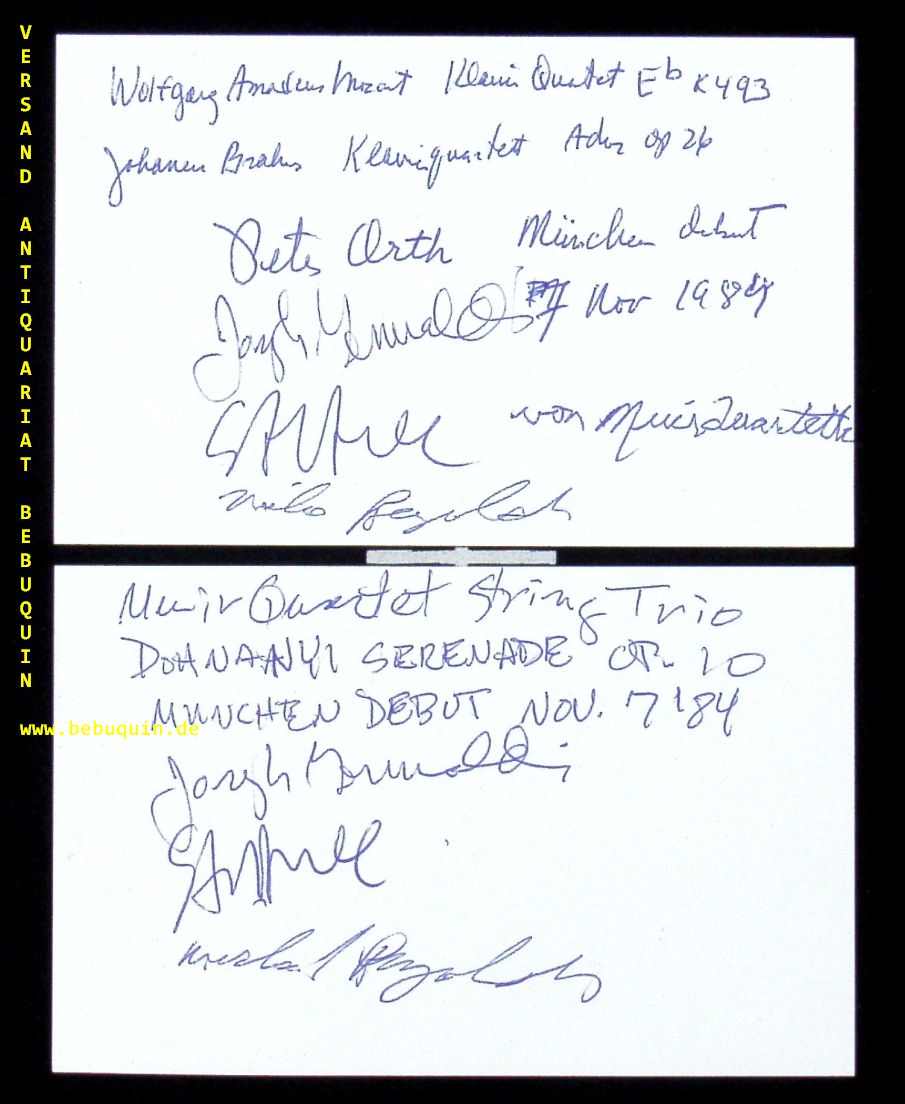 VERSAND ANTIQUARIAT BEBUQUIN
www.bebuquin.de
Wolfgang Amadeus Mozart Klavier Quartet Eb K493
Johannes Brahms Klavierquartett Adur op 26
Peter Orth München debut
Joseph Genualdi 7 Nov 1984
von Muir Quartette
Reynolds
Muir Quartet String Trio
DOHNANYI SERENADE OP. 10
MUNCHEN DEBUT NOV. 7 '84
Joseph Genualdi
Michael Reynolds